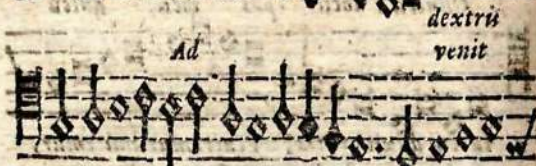 dextrũ
Ad venit